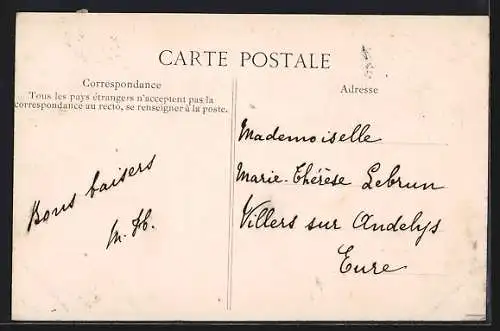 CARTE POSTALE
Correspondance
Tous les pays étrangers n'acceptent pas la
correspondance au recto, se renseigner à la poste.
Adresse
Bons baisers
M. H.
Mademoiselle
Marie-Thérèse Lebrun
Villers sur Andelys
Eure